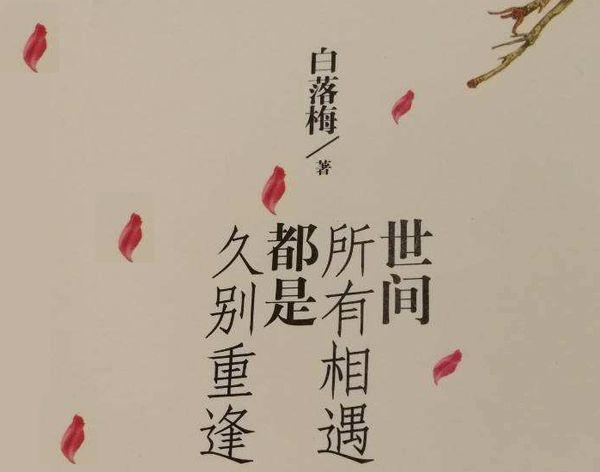 白落梅/著
世间
所有相遇
都是
久别重逢